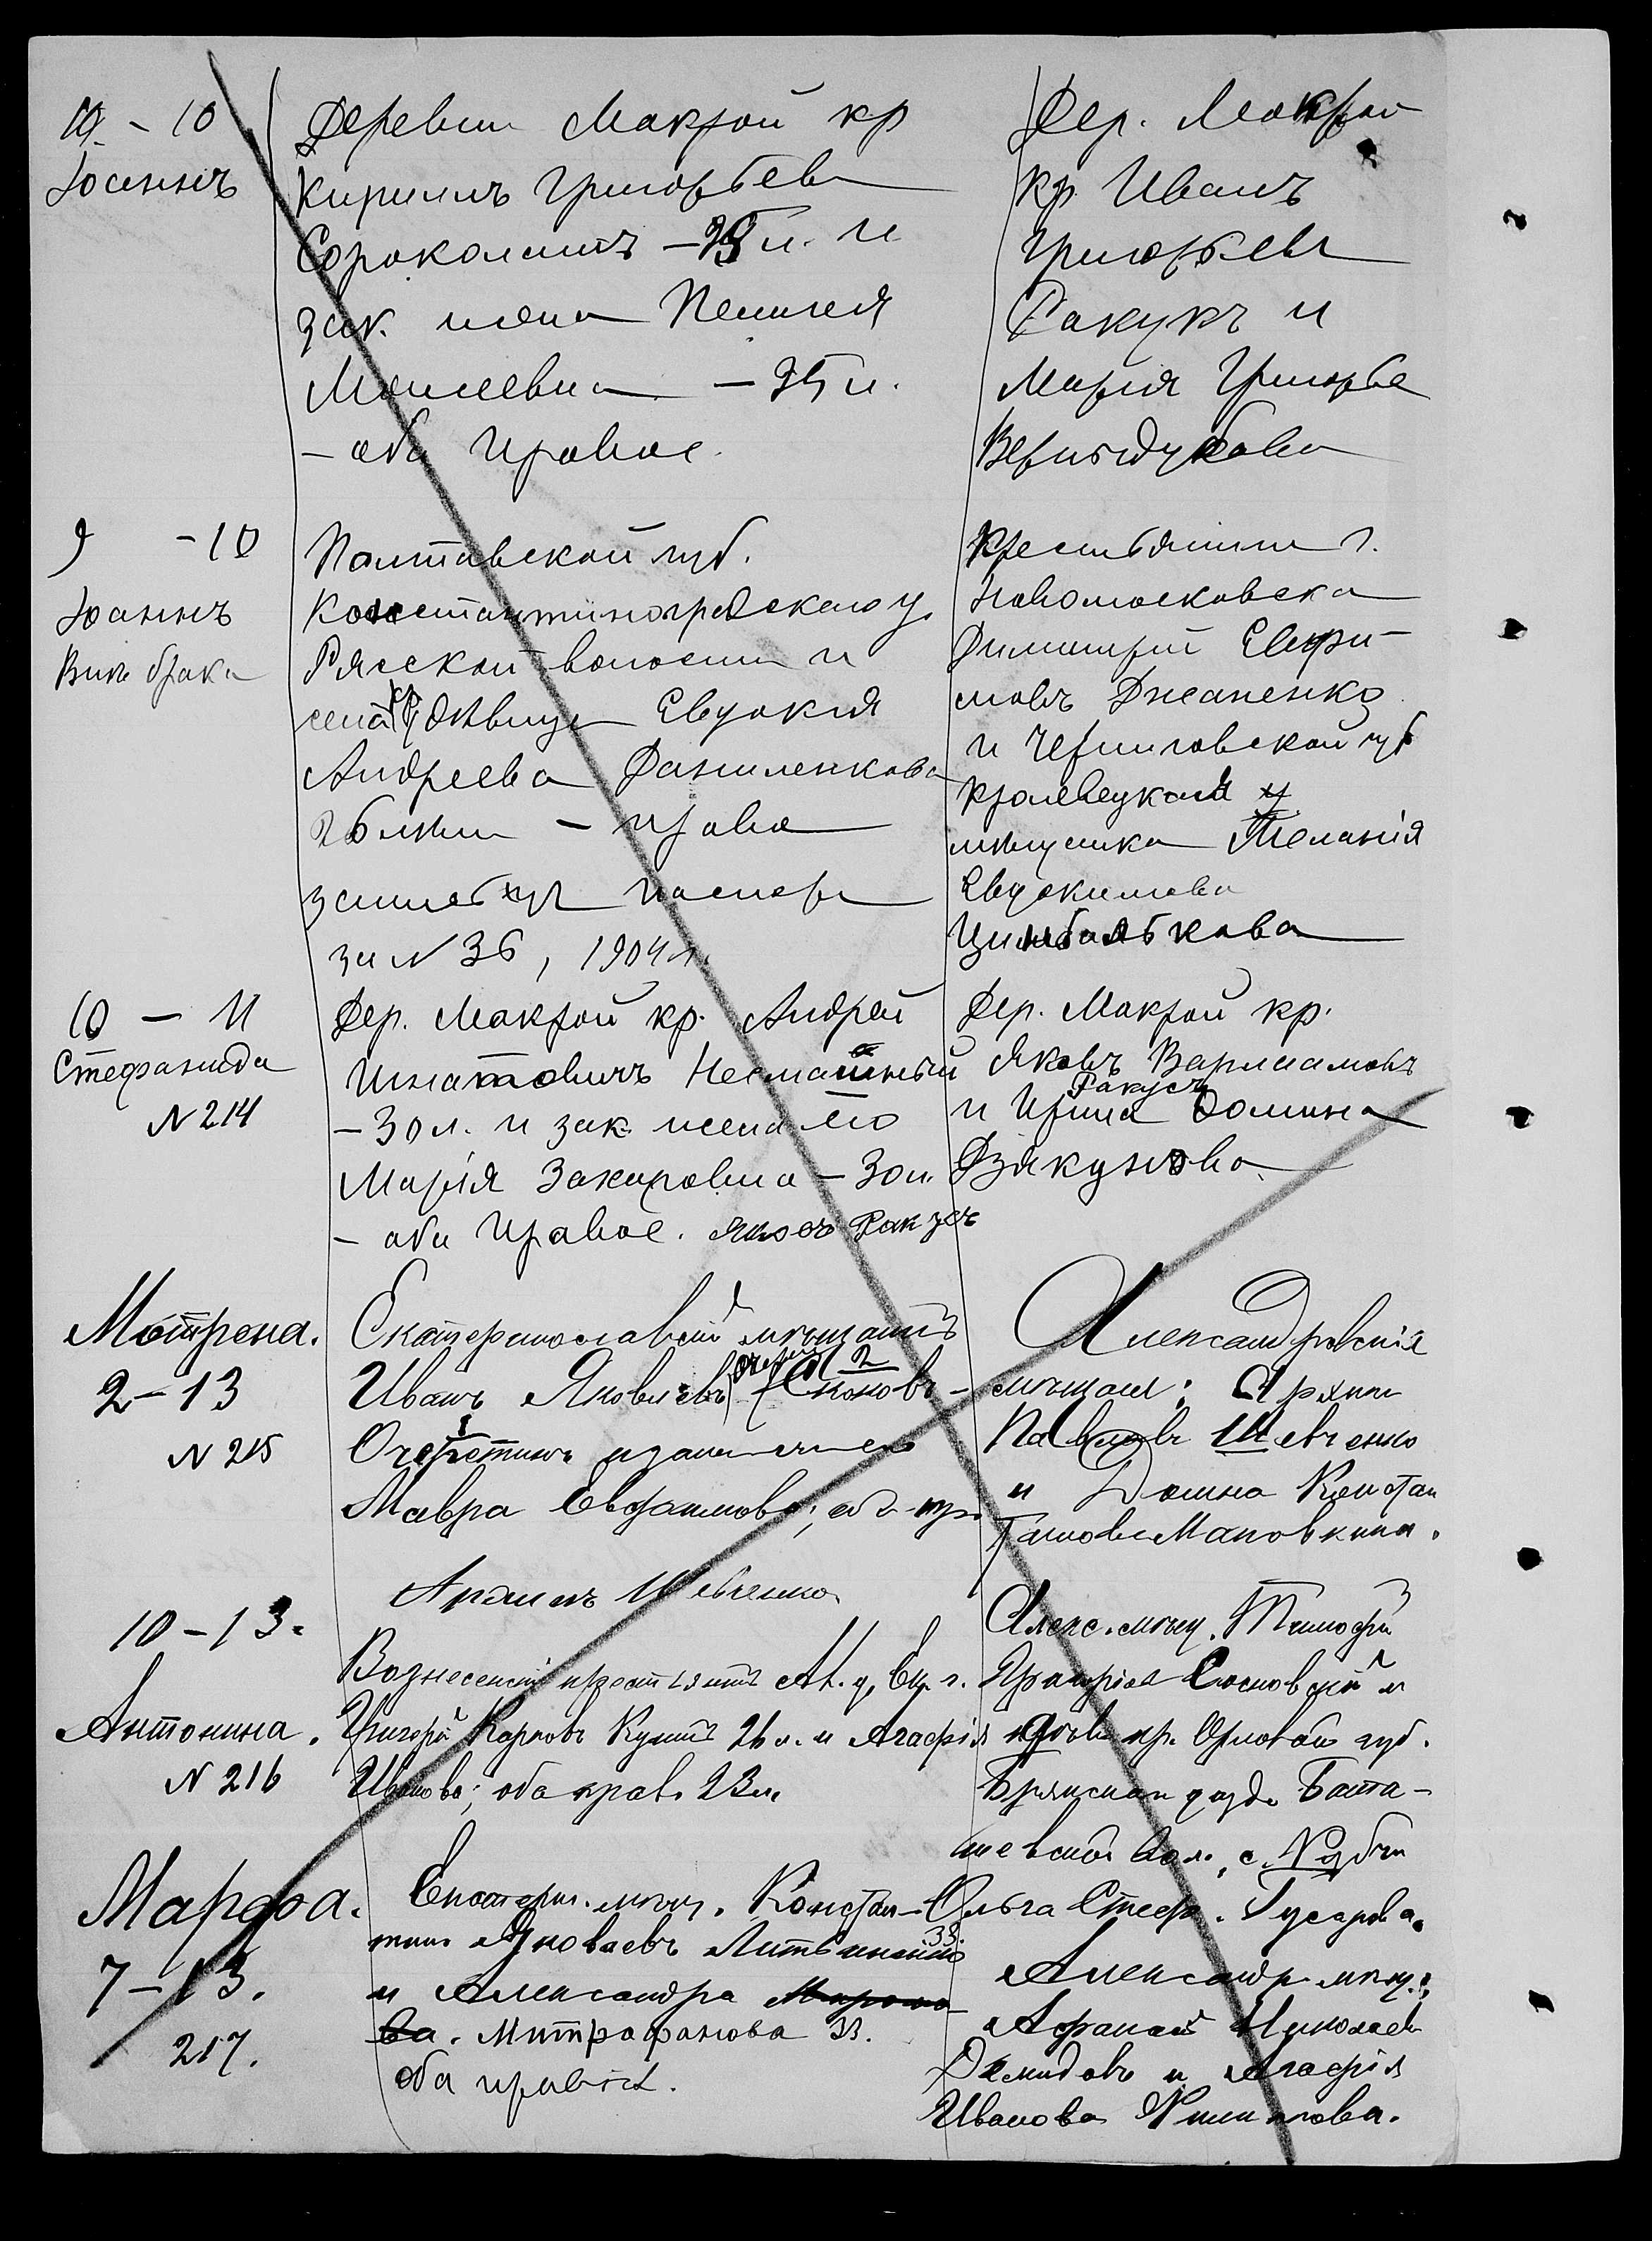 10 - 10
Іоаннъ
Деревни Мокрой кр
Кириллъ Григорьевъ
Сороколитъ - л. и
зак. жена Пелагея
Моисеевна - 35 л.
- оба правос.
Дер. Мокрой
кр. Иванъ
Григорьевъ
Ракукъ и
Марія Григорье
9 - 10
Іоаннъ
Внѣ брака
Полтавской губ.
Константиноградскаго у.
Ряской волости и
села кр. дѣвица Евдокія
Андреева Даниленкова
26 лѣтъ - правос
паспорт
за N 36, 1904 г.
Крестьянинъ г.
Новомосковска
Димитрій Евфи-
мовъ
и Черниговской губ
Кролевецкая
мѣщанка Меланія
Евдокимова
Цимбалькова
10 - 11
Стефанида
N 214
Дер. Мокрой кр. Андрей
Игнатовичъ
- 30 л. и зак. жена его
Марія Захаровна - 30 л.
- оба правос. Яковъ Ракусъ
Дер. Мокрой кр.
Яковъ Варлаамовъ
Ракусъ
и Ирина Фомина
Дзякунова
Мотрона.
2-13
N 215
Екатеринославскій мѣщанинъ
Иванъ Яковлевъ
Очеретинъ
Мавра Евфимова; оба пр.
Архипъ Шевченко
Александровскія
мѣщан: Архипъ
Павловъ Шевченко
и Домна Констан
тинова Маловкина.
10-13.
Антонина.
N 216
Вознесенскій крестьянинъ
Григорій Карповъ 26 л. и Агафія
Иванова; оба прав. 23 л.
Алекс. мѣщ. Тимофѣй
Сосновскій и
кр. Орловской губ.
Брянскаго уѣзда Бата-
шевской вол., с.
Ольга Стеф. Гусарова.
Марфа.
7-13.
217.
Екатерин. мѣщ. Констан-
тинъ Яковлевъ Литвиненко 33.
и Александра
ва. Митрофанова 33.
оба правосл.
Александр. мѣщ.:
Афанасій Николаевъ
Демидовъ и Агафія
Иванова